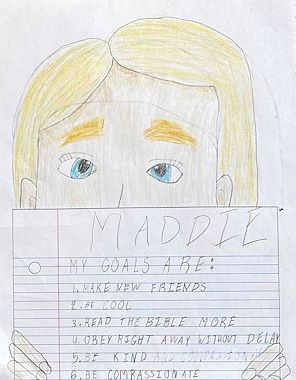 MADDIE
MY GOALS ARE:
1. MAKE NEW FRIENDS
2. BE COOL
3. READ THE BIBLE MORE
4. OBEY RIGHT AWAY WITHOUT DELAY
5. BE KIND AND COMPASSION
6. BE COMRASSIONATE